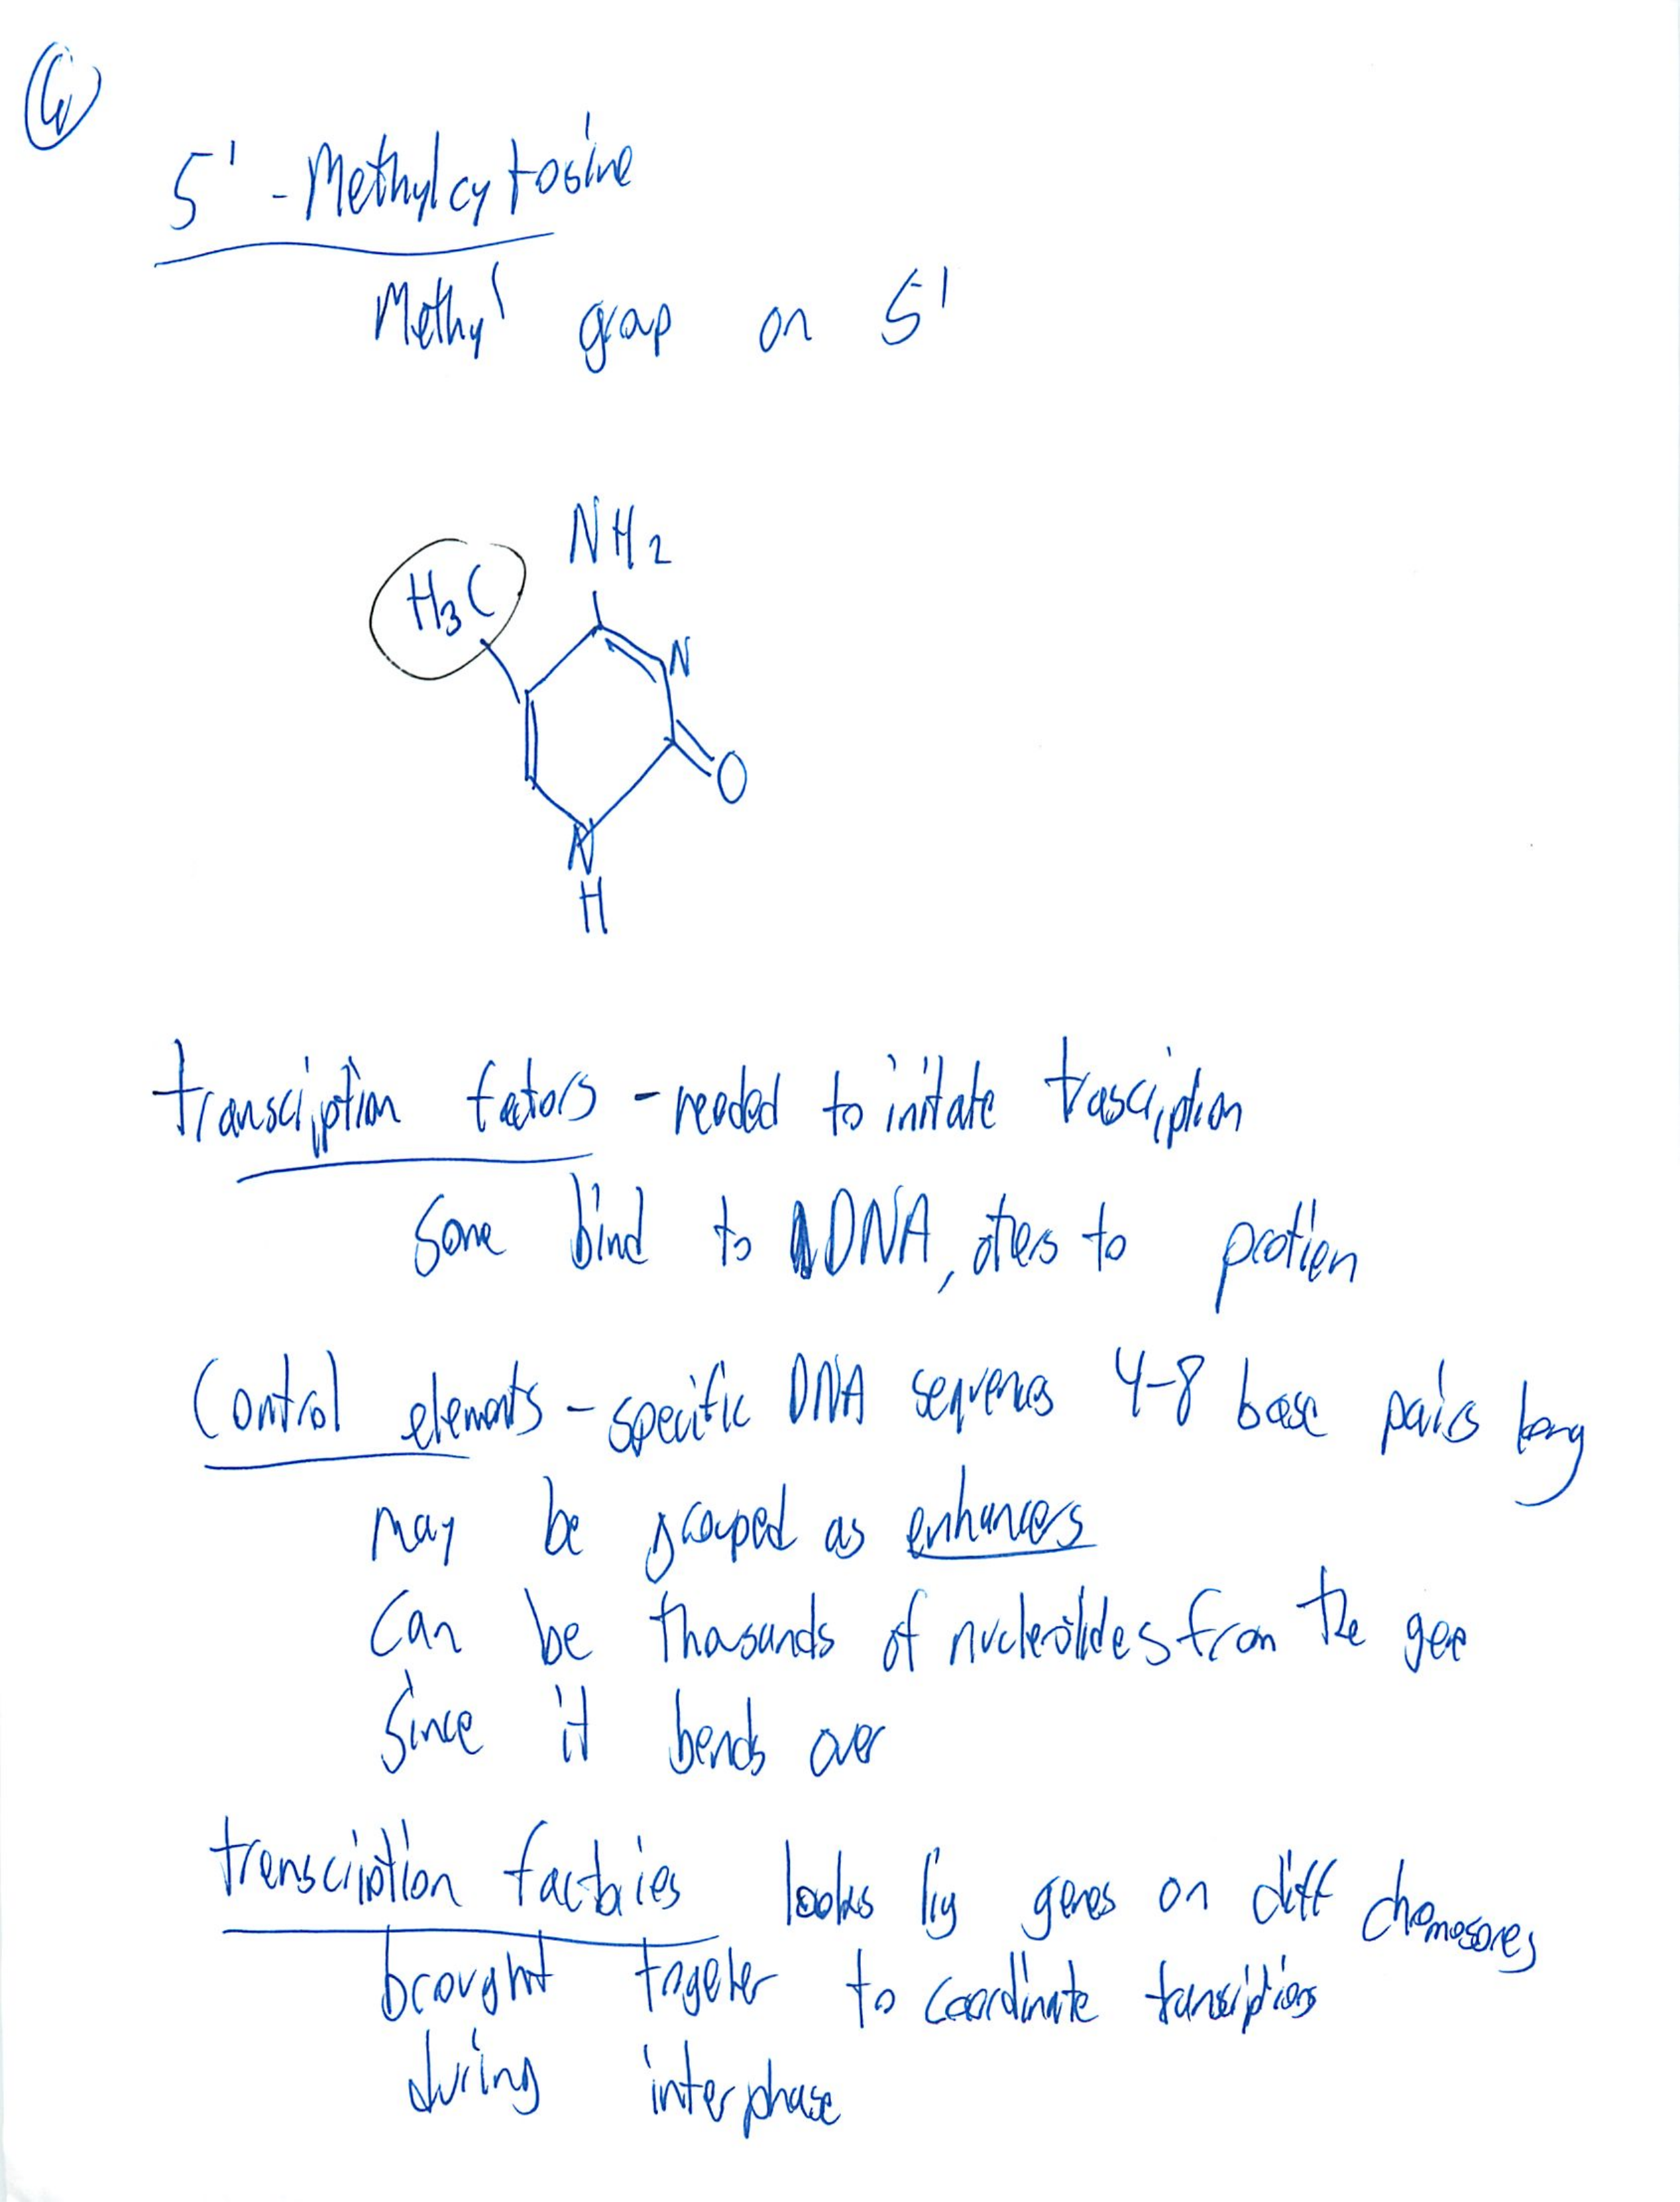 4
5' - Methylcytosine
Methyl group on 5'
NH2
H3C
N
O
N
H
transciption factors - needed to initate trasciption
Some bind to DNA, others to protien
Control elements - specific DNA sequences 4-8 base pairs long
may be grouped as enhancers
Can be thousands of nucleotides from the gene
Since it bends over
transciption factories looks lig genes on diff chomosomes
brought togeter to coordinate transciptions
during interphase